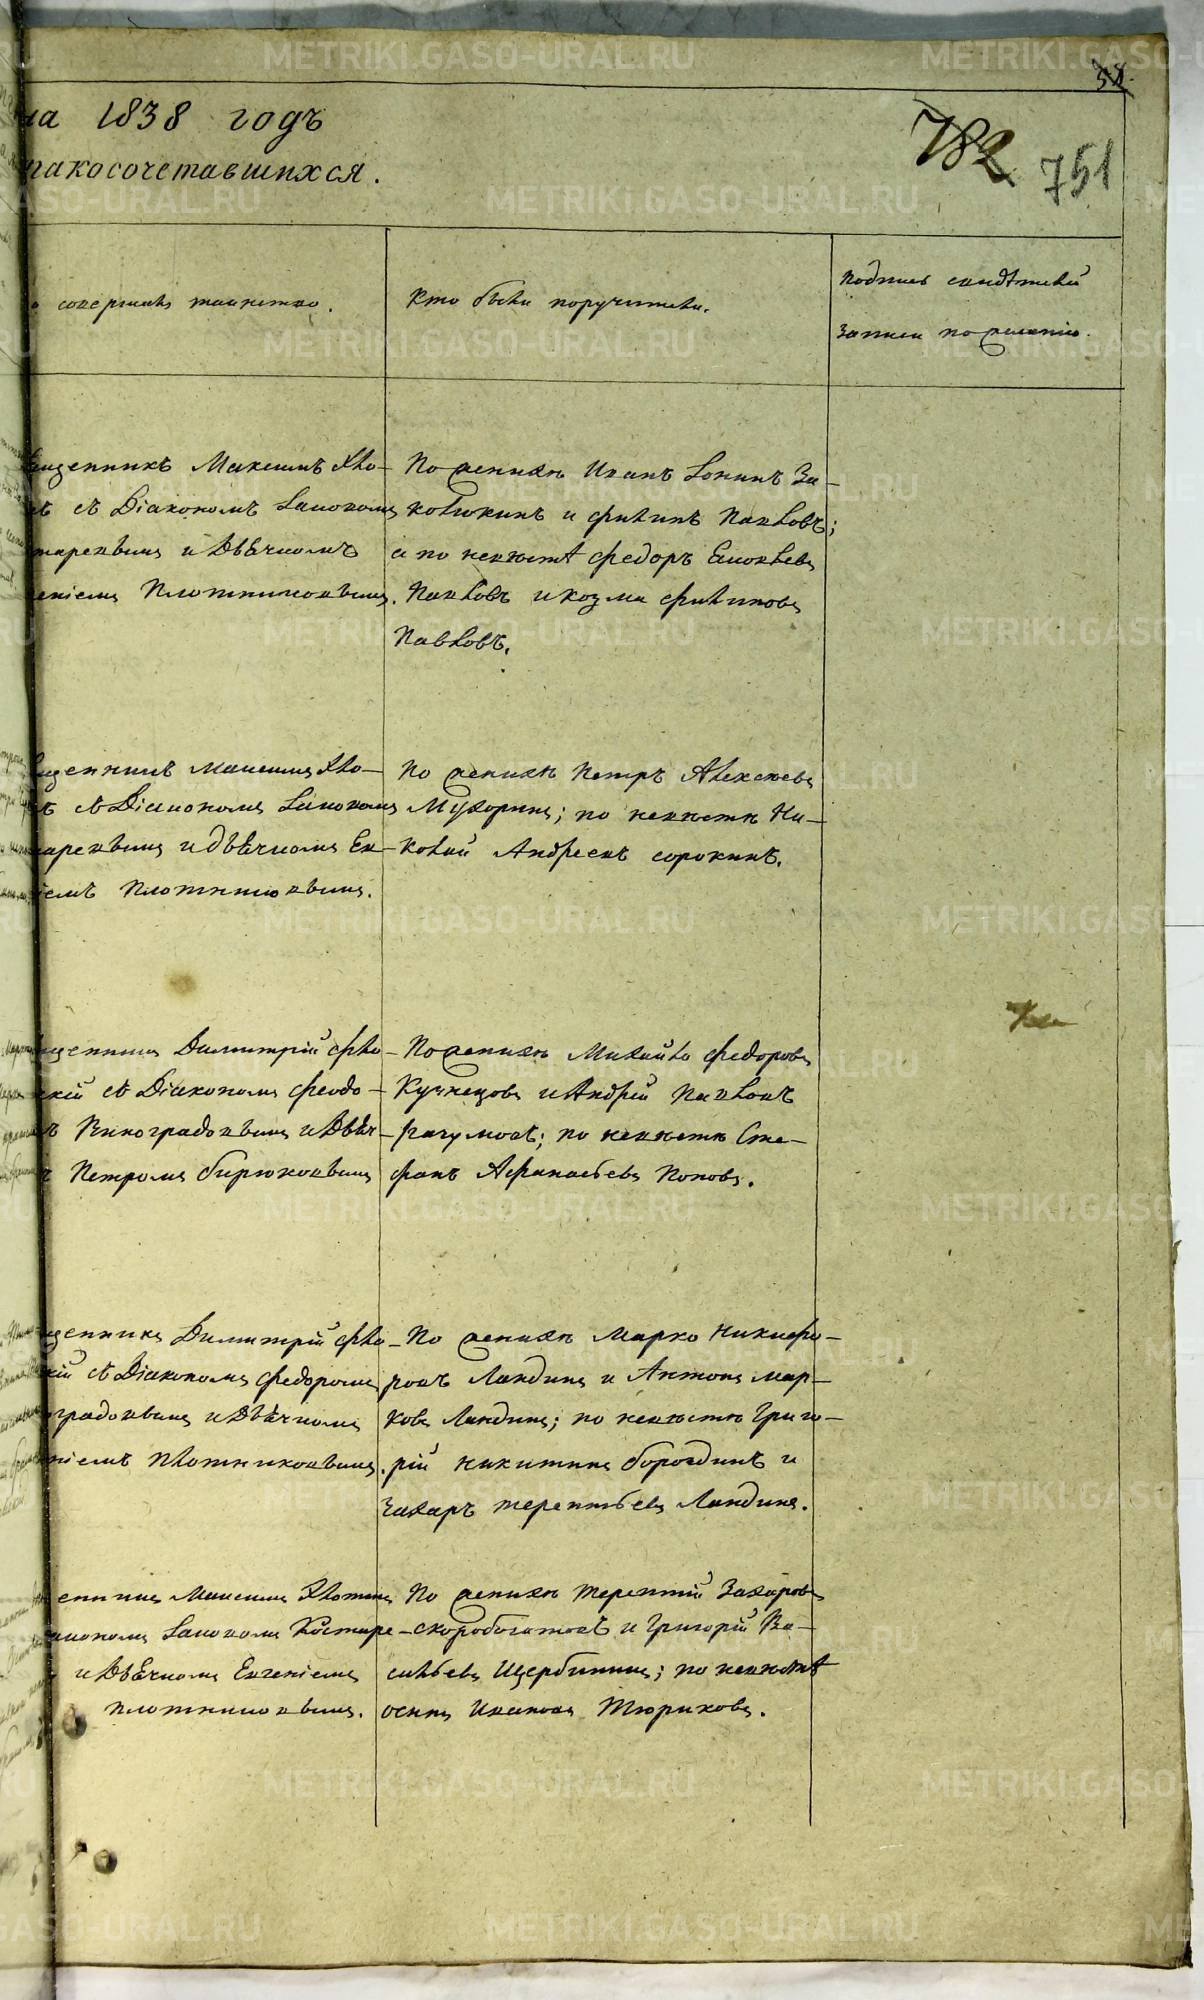 58.
на 1838 годъ
782 751
ракосочетавшихся.
о совершалъ таинство.
Кто были поручители.
Подпись свидѣтелей
записи по желанію.
Священникъ Максимъ Хло-
съ Діакономъ Іаковомъ
старевымъ и Дьячкомъ
геніемъ Плотниковымъ.
По женихѣ Иванъ
и филипъ Павловъ;
а по невѣстѣ федоръ
Павловъ и козма филиповъ
Павловъ.
щенникъ Максимъ Хло-
съ Діакономъ Іаковомъ
старевымъ и дьячкомъ Ев-
ніемъ Плотниковымъ.
По женихѣ Петръ Алексѣевъ
Мухоринъ; по невѣстѣ Ни-
колай Андреевъ сорокинъ.
щенникъ Димитрій фло-
скій съ Діакономъ феодо-
ъ Виноградовымъ и Дьяч-
ъ Петромъ бирюковымъ
По женихѣ Михайло федоровъ
Кузнецовъ и Андрей Павловъ
по невѣстѣ Сте-
фанъ Афанасьевъ Поповъ.
щенникъ Димитрій фло-
скій съ Діакономъ федоромъ
градовымъ и Дьячкомъ
ніемъ Плотниковымъ.
По женихѣ Марко Никифо-
ровъ Ландинъ и Антонъ мар-
ковъ Ландинъ; по невѣстѣ Григо-
рій никитинъ бороздинъ и
Захаръ терентьевъ Ландинъ.
щенникъ Максимъ Хлотинъ
Діакономъ Іаковомъ Костаре-
и Дьячкомъ Евгеніемъ
плотниковымъ.
По женихѣ терентій Захаровъ
скоробогатовъ и Григорій Ва-
сильевъ Щербининъ; по невѣстѣ
осипъ Ивановъ Тюриковъ.
METRIKI.GASO-URAL.RU